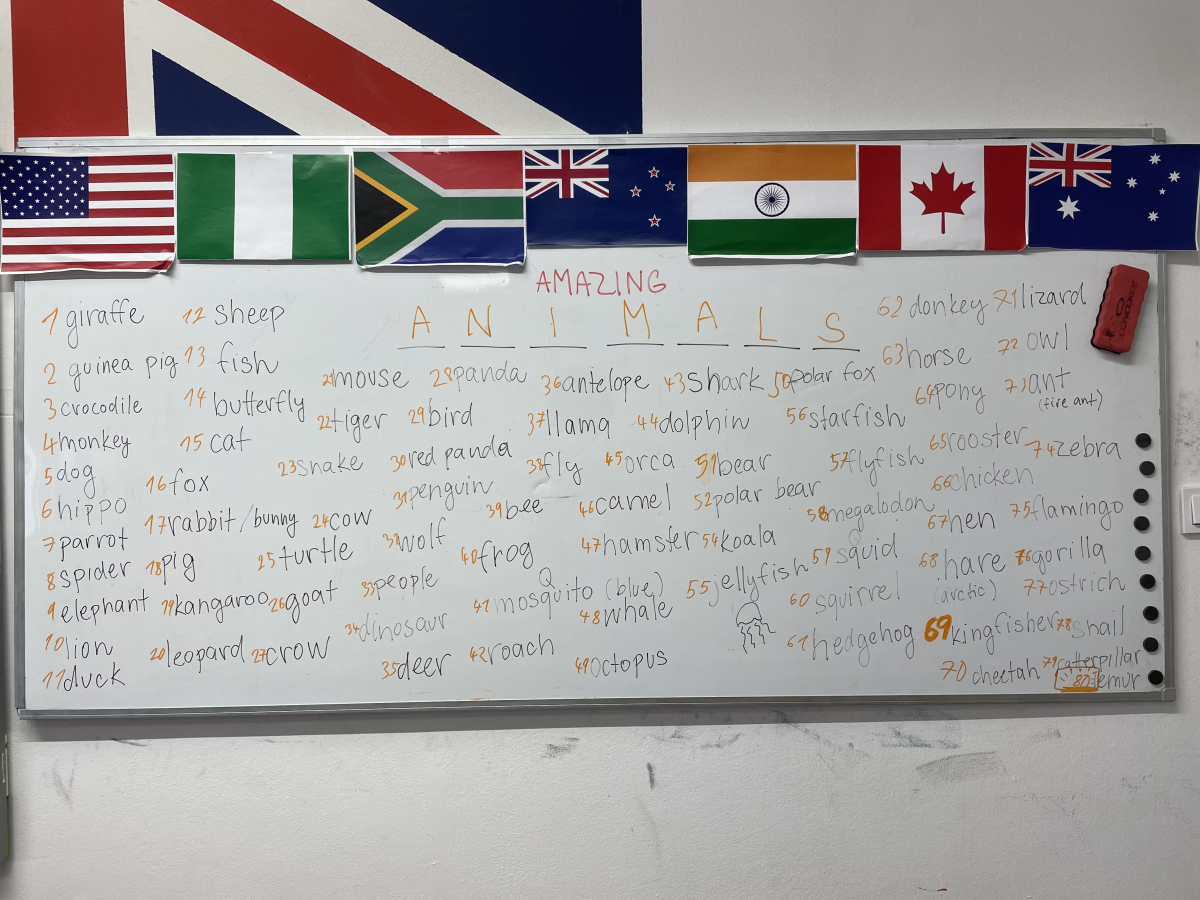 AMAZING
ANIMALS
1 giraffe
2 guinea pig
3 crocodile
4 monkey
5 dog
6 hippo
7 parrot
8 spider
9 elephant
10 lion
11 duck
12 sheep
13 fish
14 butterfly
15 cat
16 fox
17 rabbit/bunny
18 pig
19 kangaroo
20 leopard
21 mouse
22 tiger
23 snake
24 cow
25 turtle
26 goat
27 crow
28 panda
29 bird
30 red panda
31 penguin
32 wolf
33 people
34 dinosaur
35 deer
36 antelope
37 llama
38 fly
39 bee
40 frog
41 mosquito
42 roach
43 shark
44 dolphin
45 orca
46 camel
47 hamster
(blue)
48 whale
49 octopus
50 polar fox
51 bear
52 polar bear
54 koala
55 jellyfish
56 starfish
57 flyfish
58 megalodon
59 squid
60 squirrel
61 hedgehog
62 donkey
63 horse
64 pony
65 rooster
66 chicken
67 hen
68 hare
(arctic)
69 kingfisher
70 cheetah
71 lizard
72 owl
73 ant
(fire ant)
74 zebra
75 flamingo
76 gorilla
77 ostrich
78 snail
79 catterpillar
80 lemur
CONCORDE